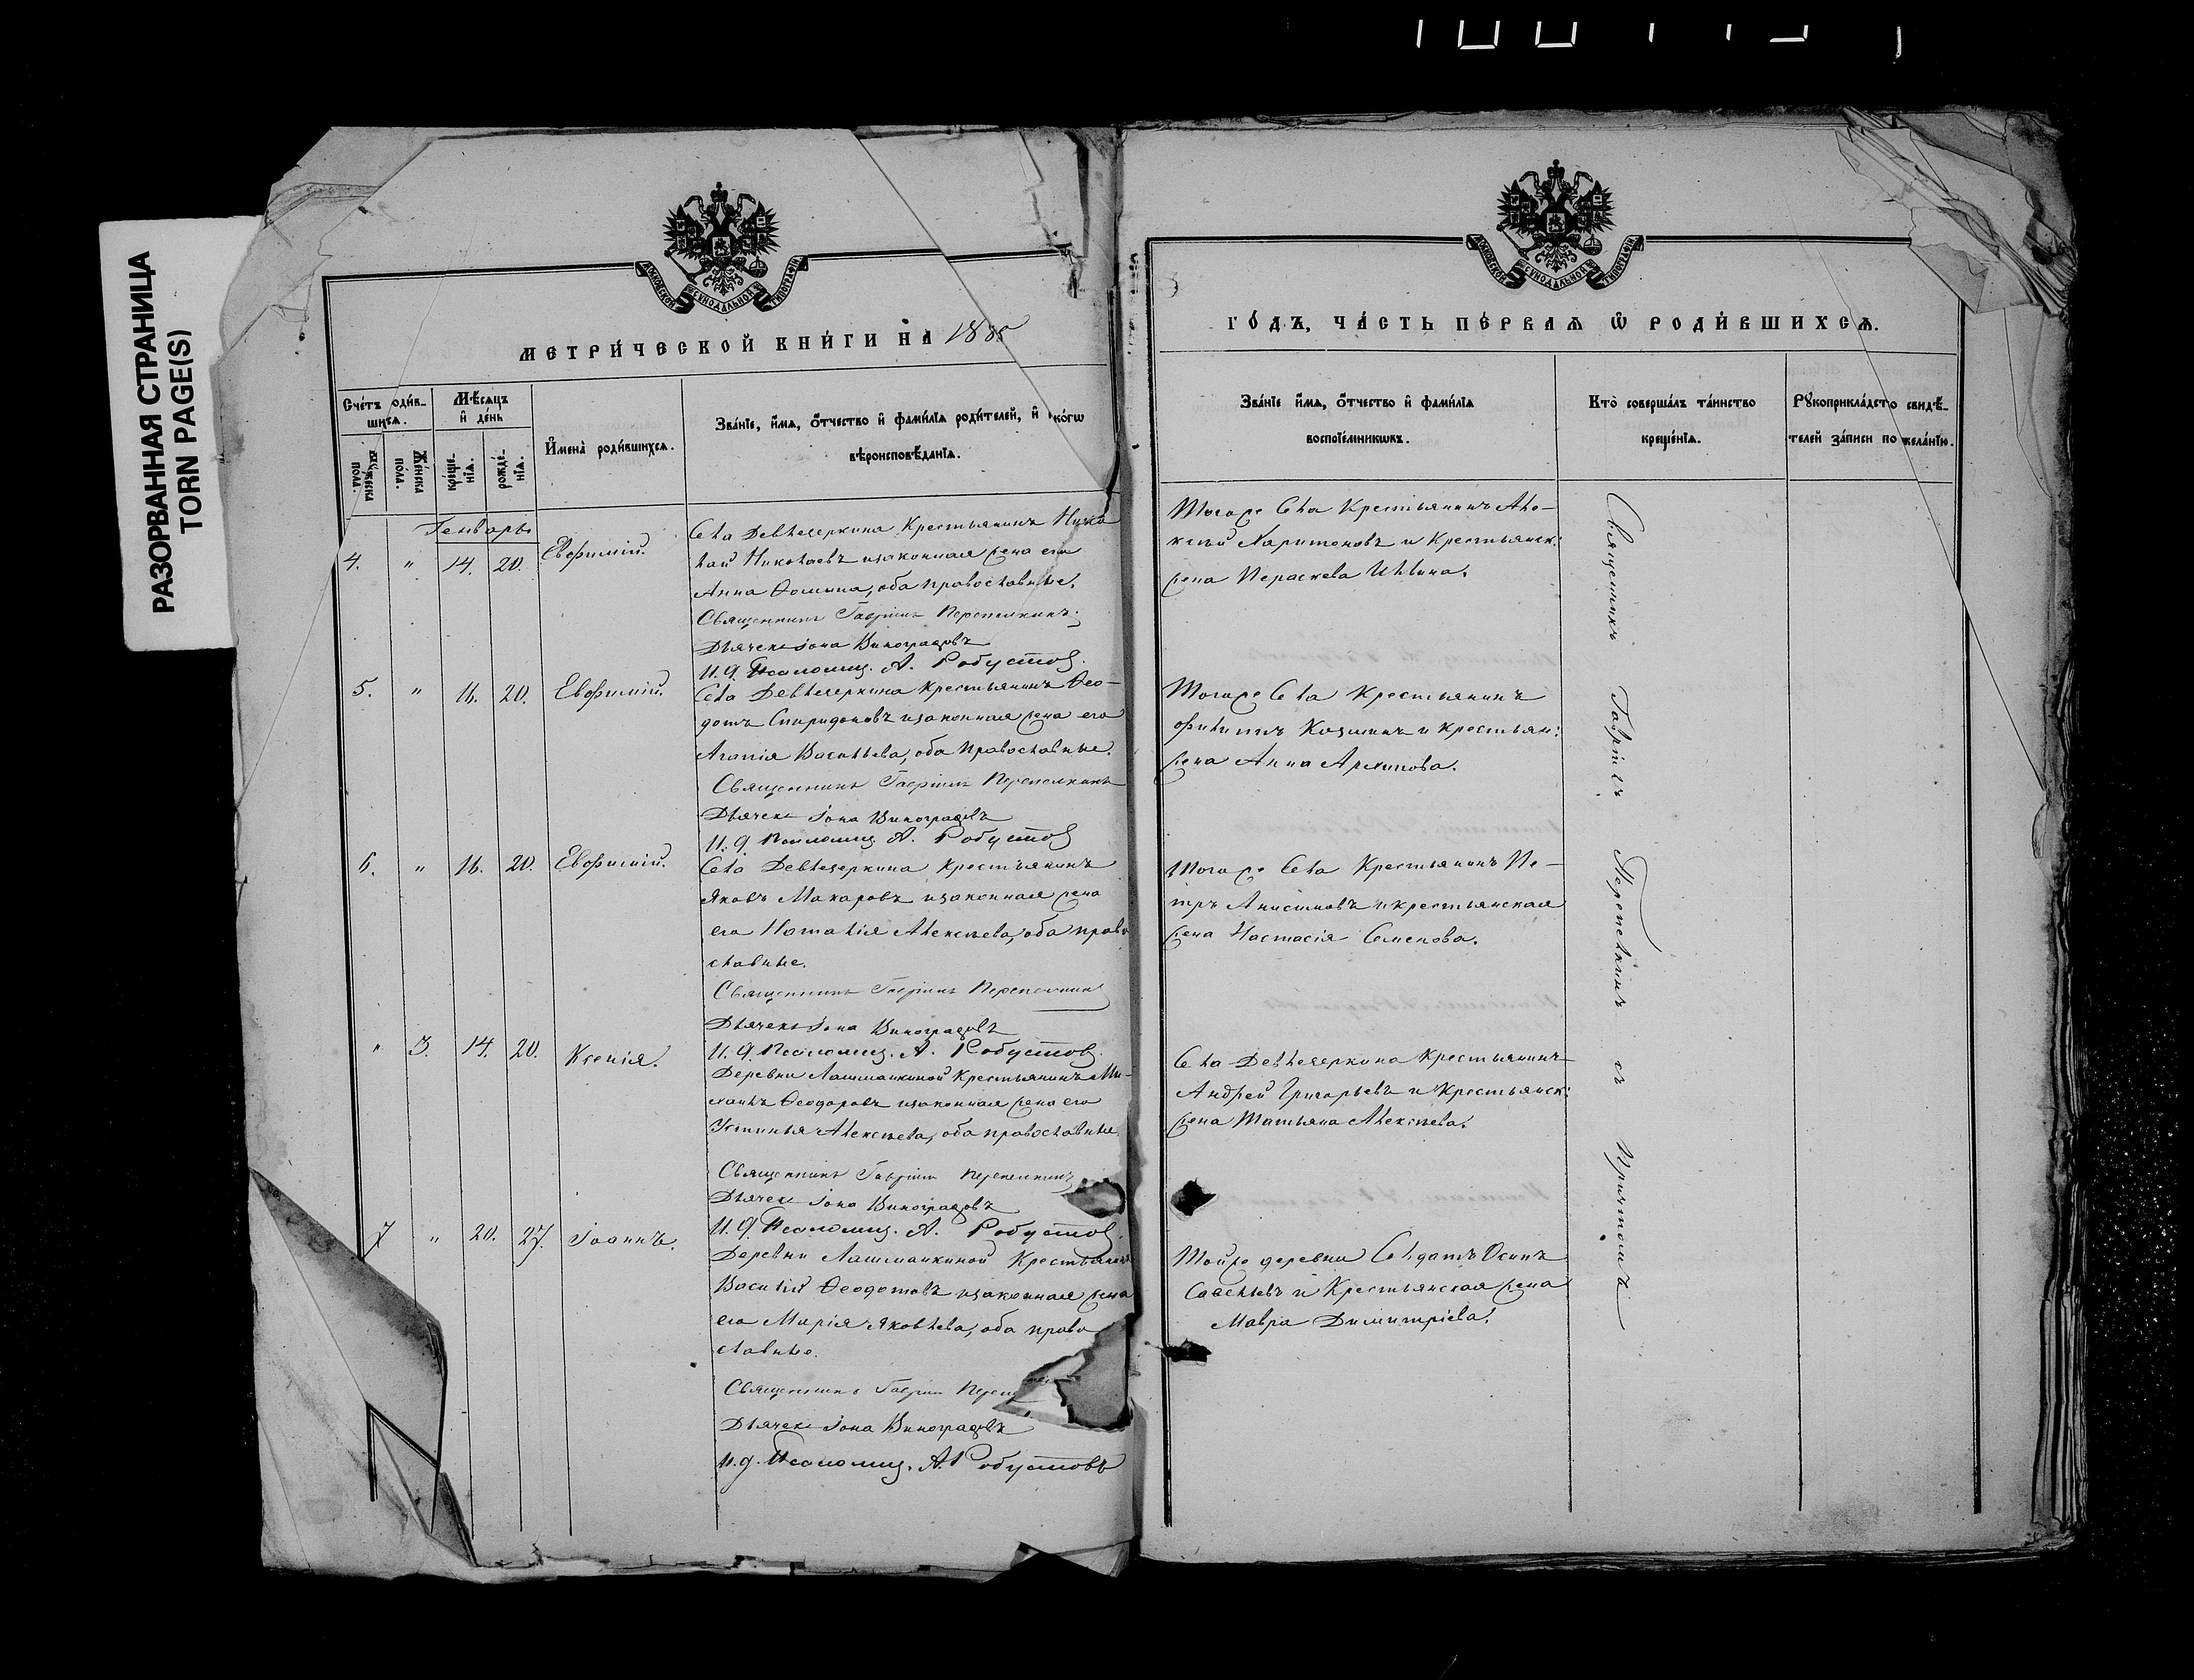 РАЗОРВАННАЯ СТРАНИЦА
TORN PAGE(S)
МОСКОВСКОЙ СѴНОДАЛЬНОЙ ТИПОГРАФІИ
МЕТРИ́ЧЕСКОЙ КНИ́ГИ НА 1885
Сче́тъ роди́в-
шихся.
Мѣ́сяцъ
и҆ де́нь
Му́жеска
пола.
Же́нска
пола.
креще-
нїя.
рожде-
нїя.
И҆мена̀ роди́вшихся.
Зва́нїе, и҆́мя, ѻ҆́тчество и҆ фами́лїя роди́телей, и҆ ко́гѡ
вѣроисповѣ́данїя.
Генварь
4. " 14. 20. Евфимій.
Села Девлезеркина Крестьянинъ Нико
лай Николаевъ изаконная жена его
Анна Ѳомина, оба православные.
Священникъ Гавріилъ Перепелкинъ.
Дьячекъ Іона Виноградовъ
И. д. Псаломщ. А. Робустов
5. " 16. 20. Евфимій.
Села Девлезеркина Крестьянинъ Ѳео-
дотъ Спиридоновъ изаконная жена его
Агапія Васильева, оба православные.
Священникъ Гавріилъ Перепелкинъ
Дьячекъ Іона Виноградовъ
И. д. Псаломщ. А. Робустов
6. " 16. 20. Евфимій.
Села Девлезеркина Крестьянинъ
Яковъ Макаровъ изаконная жена
его Наталія Алексѣева, оба право
славные.
Священникъ Гавріилъ Перепелкинъ
Дьячекъ Іона Виноградовъ
И. д. Псаломщ. А. Робустов
" 3. 14. 20. Ксенія.
Деревни Лашманкиной Крестьянинъ Ми-
хаилъ Ѳеодоровъ изаконная жена его
Устинья Алексѣева, оба православные.
Священникъ Гавріилъ Перепелкинъ
Дьячекъ Іона Виноградовъ
И. д. Псаломщ. А. Робустов
7 " 20. 27. Іоаннъ.
Деревни Лашманкиной Крестьянинъ
Василій Ѳеодотовъ изаконная жена
его Марія Яковлева, оба право
славные.
Священникъ Гавріил Перепел
Дьячекъ Іона Виноградовъ
И. д. Псаломщ. А. Робустовъ
МОСКОВСКОЙ СѴНОДАЛЬНОЙ ТИПОГРАФІИ
ГО́ДЪ, ЧА́СТЬ ПЕ́РВАЯ Ѡ҆ РОДИ́ВШИХСЯ.
Зва́нїе и҆́мя, ѻ҆́тчество и҆ фами́лїя
воспрїе́мникѡвъ.
Кто̀ соверша́лъ та́инство
креще́нїя.
Рꙋкоприкла́дство свидѣ́-
телей за́писи по жела́нїю.
Тогоже Села Крестьянинъ Але-
ксѣй Харитоновъ и Крестьянск:
жена Пераскева Ильина.
Тогоже Села Крестьянинъ
Филиппъ Козминъ и крестьян:
жена Анна Архипова.
Тогоже Села Крестьянинъ Пе-
тръ Анисимовъ и крестьянская
жена Настасія Семенова.
Села Девлезеркина Крестьянинъ
Андрей Григорьевъ и Крестьянск:
жена Татьяна Алексѣева.
Тойже деревни Солдатъ Осипъ
Савельевъ и Крестьянская жена
Мавра Димитріева.
Священникъ Гавріилъ Перепелкинъ съ Причтомъ